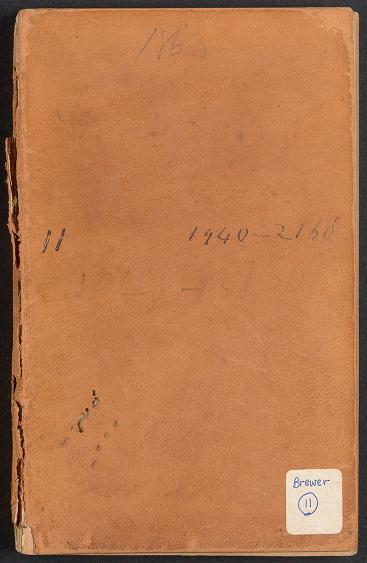 1863
11 1940-2160
Brewer
11